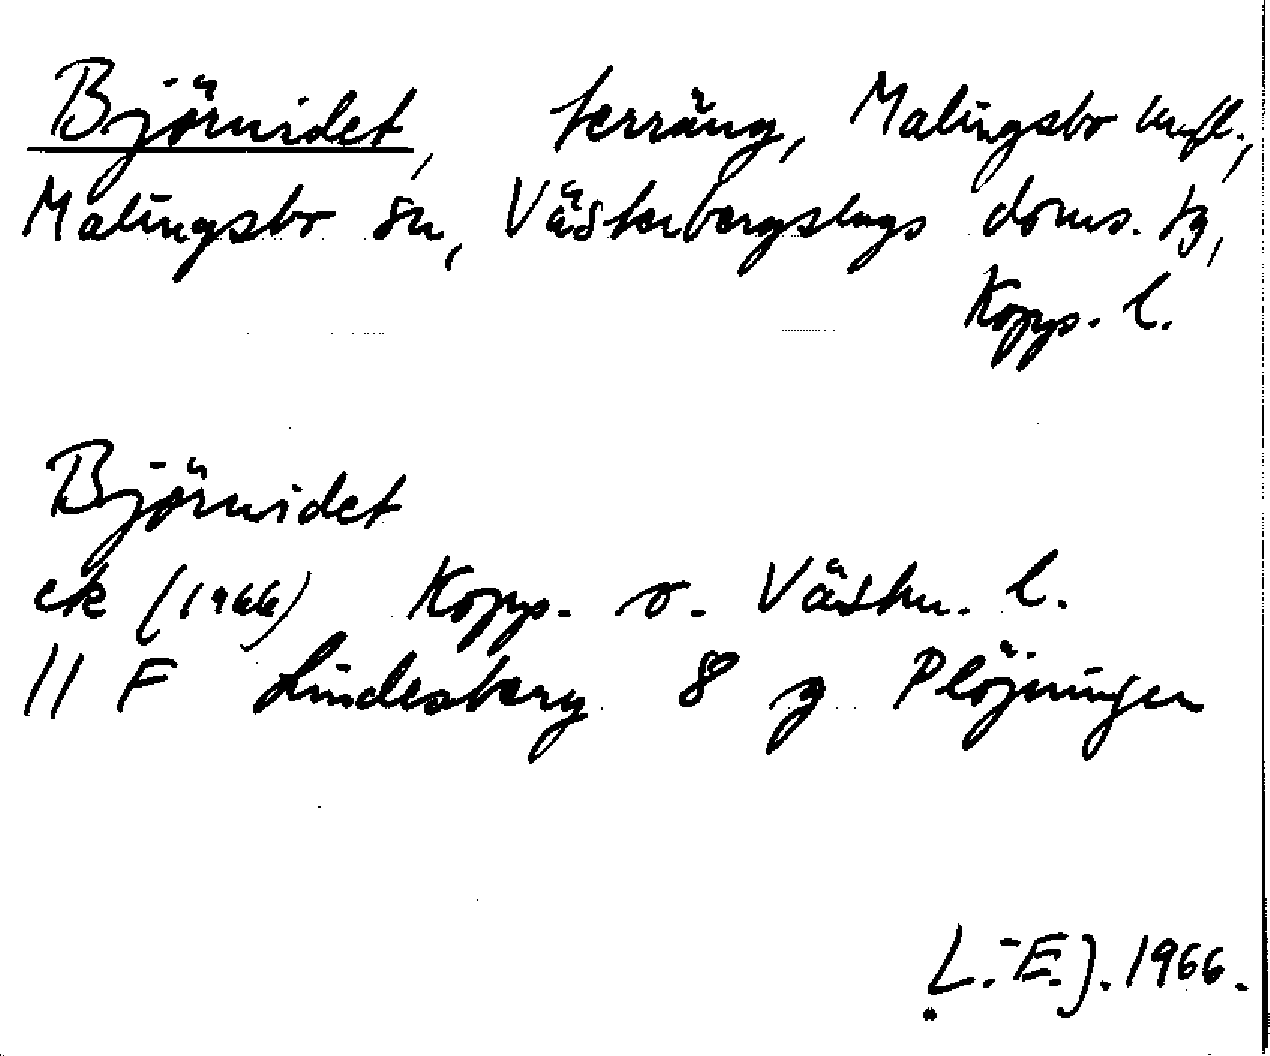 Björnidet, terräng, Malingsbo krfl.,
Malingsbo sn, Västerbergslags doms. tg,
Kopp. l.
Björnidet
ek (1966) Kopp. o. Västm. l.
11 F Lindesberg 8 g Plöjningen
L.-E.J. 1966.